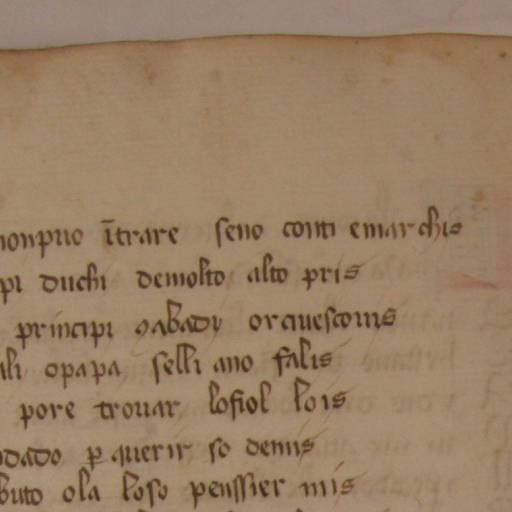 nonpuo ītrare seno conti emarchis
pi duchi demolto alto pris
principi ꝯabady orciuescouis
ili opapa selli ano falis
pore trouar lofiol lois
ndado ꝑ querir so demis
buto ola loso penssier mis